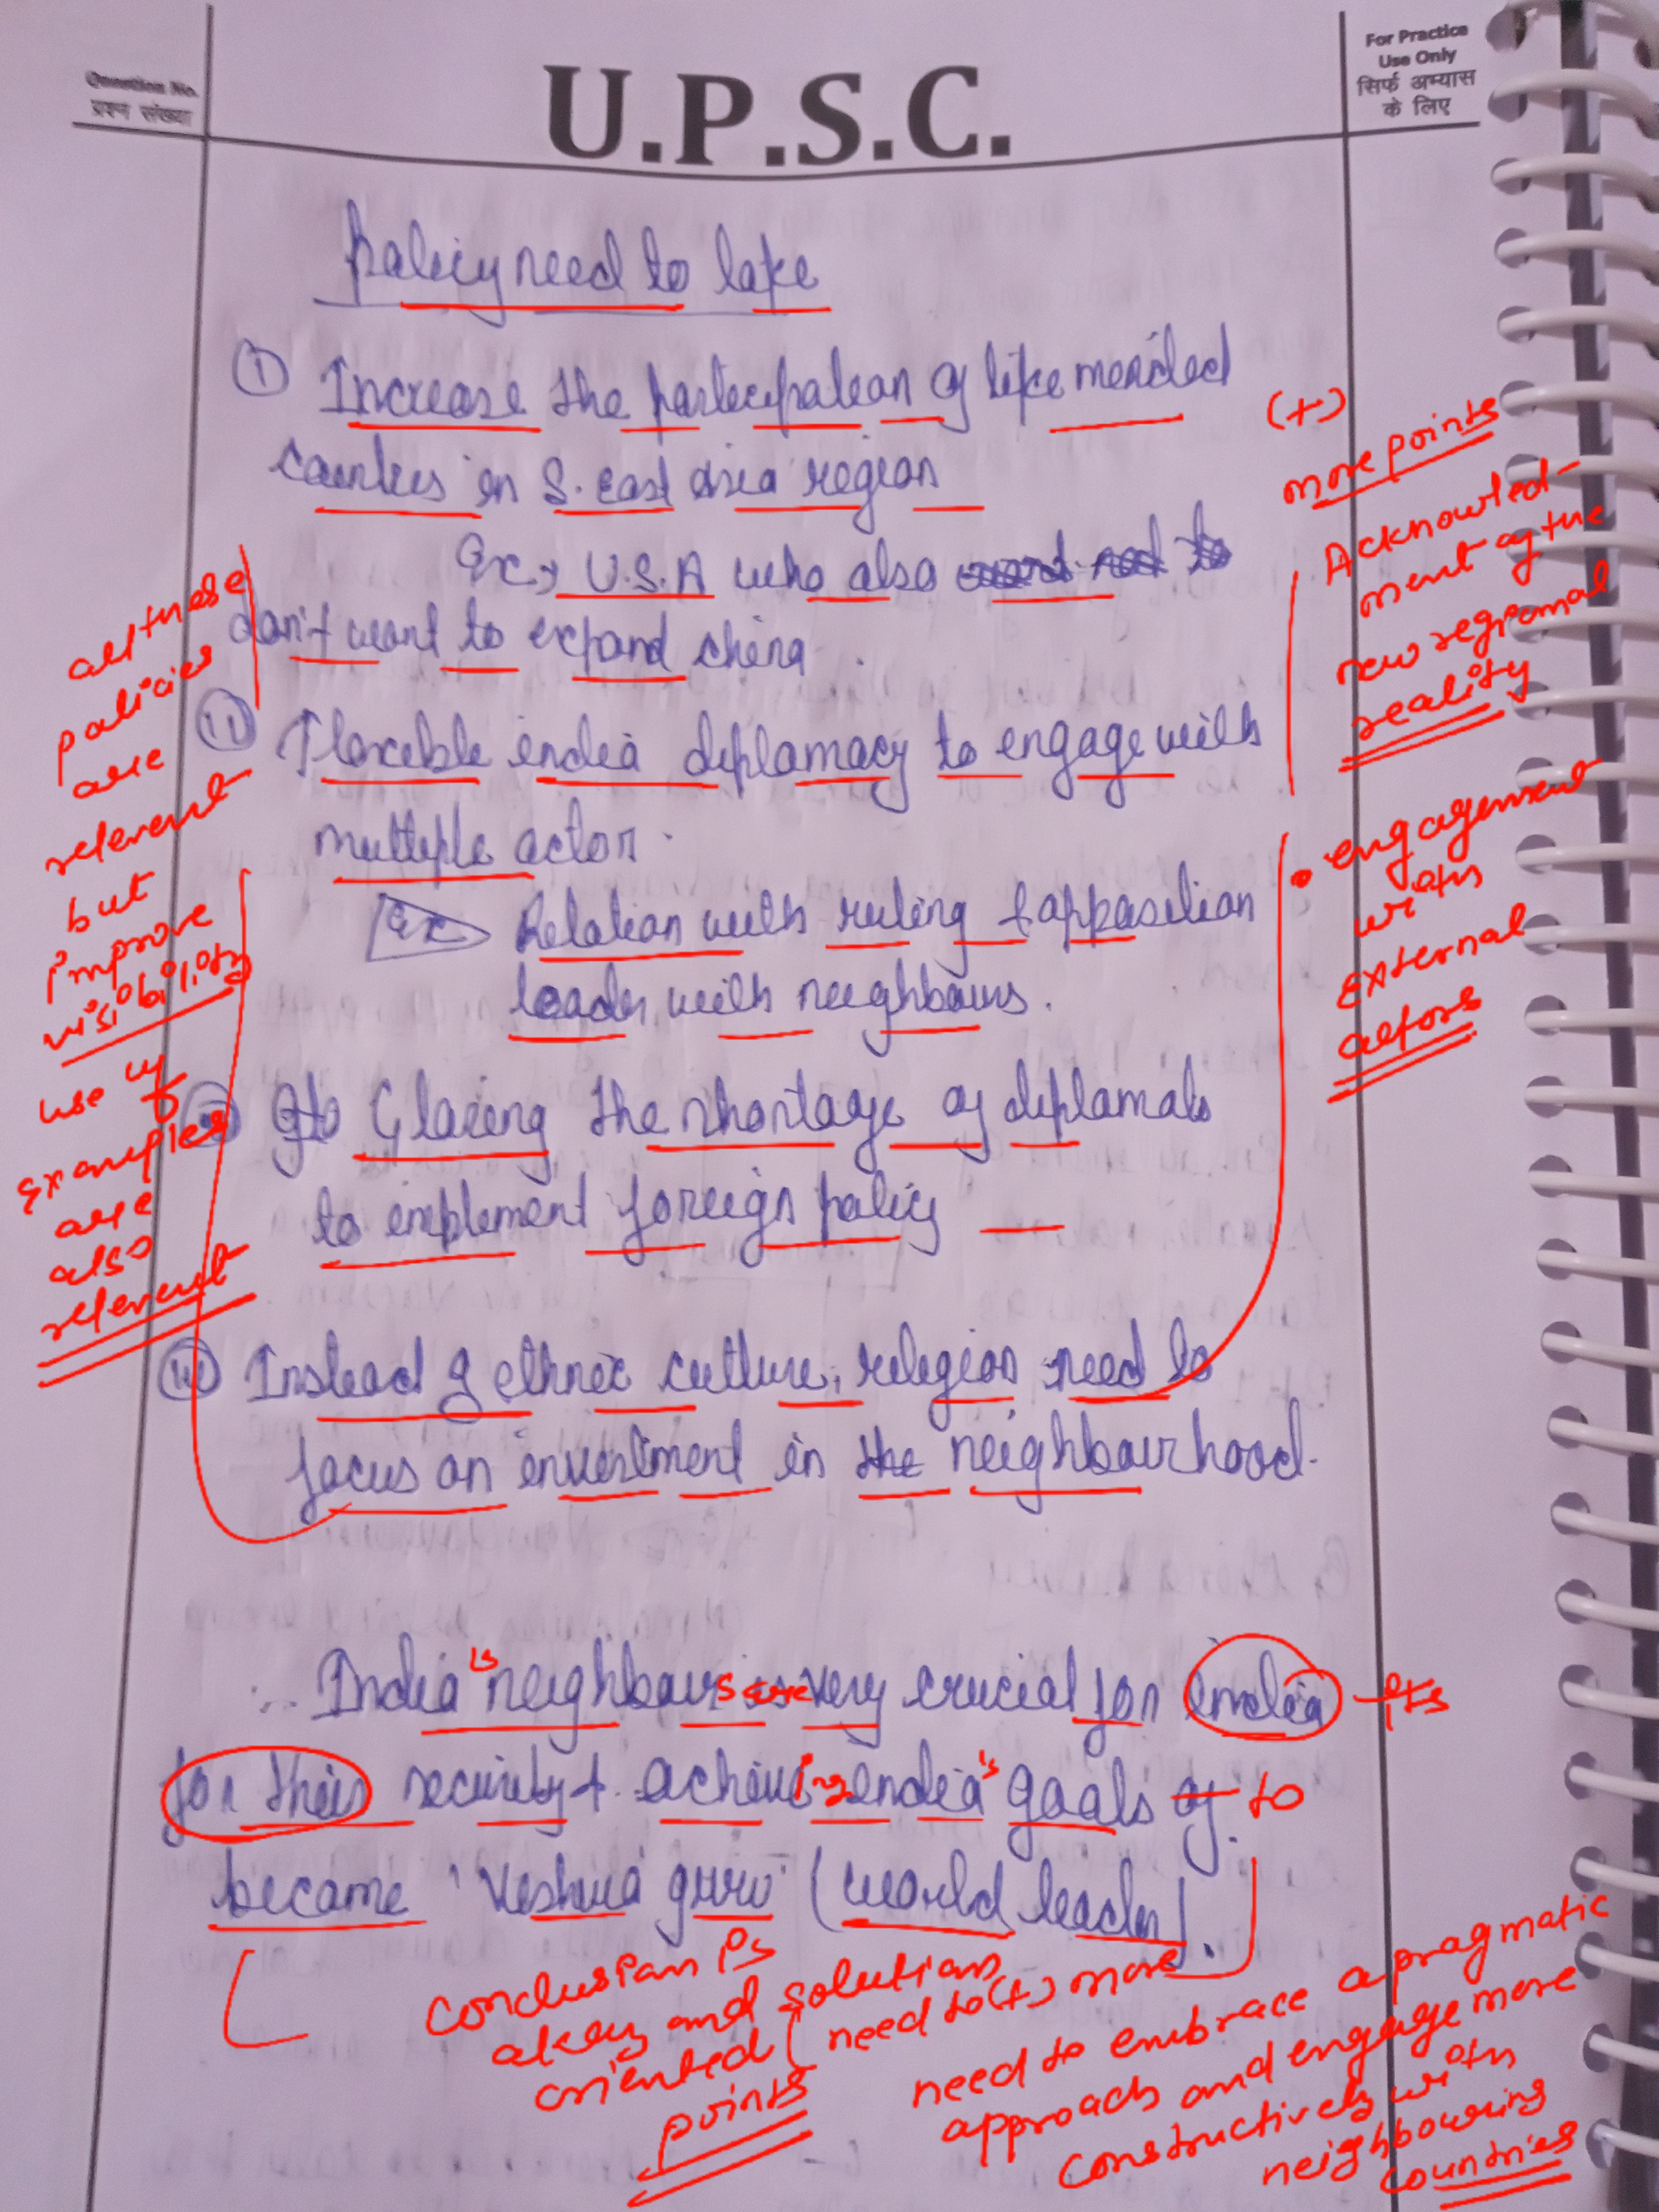 Question No.
प्रश्न संख्या
U.P.S.C.
For Practice
Use Only
सिर्फ अभ्यास
के लिए
Policy need to take
(i) Increase the participation of like minded
countries in S. east Asia region
Ex → U.S.A who also
don't want to expand china
(ii) Flexible india diplomacy to engage with
multiple actor.
Ex Relation with ruling & opposition
leader with neighbours.
Glaring the shortage of diplomats
to implement foreign policy
Instead of ethnic culture, religion need to
focus on investment in the neighbourhood.
∴ India's neighbours are very crucial for india its
for their security & achieving india's goals of to
became 'Veshwa guru' (world leader).
all these
policies
are
relevent
but
improve
visibility
use of
examples
are
also
relevent
(+)
more points
Acknowled-
ment of the
new regional
reality
• engagement
with
external
actors
Conclusion is
okay and solution
oriented
points
need to (+) more
need to embrace a pragmatic
approach and engage more
constructively with
neighbouring
countries